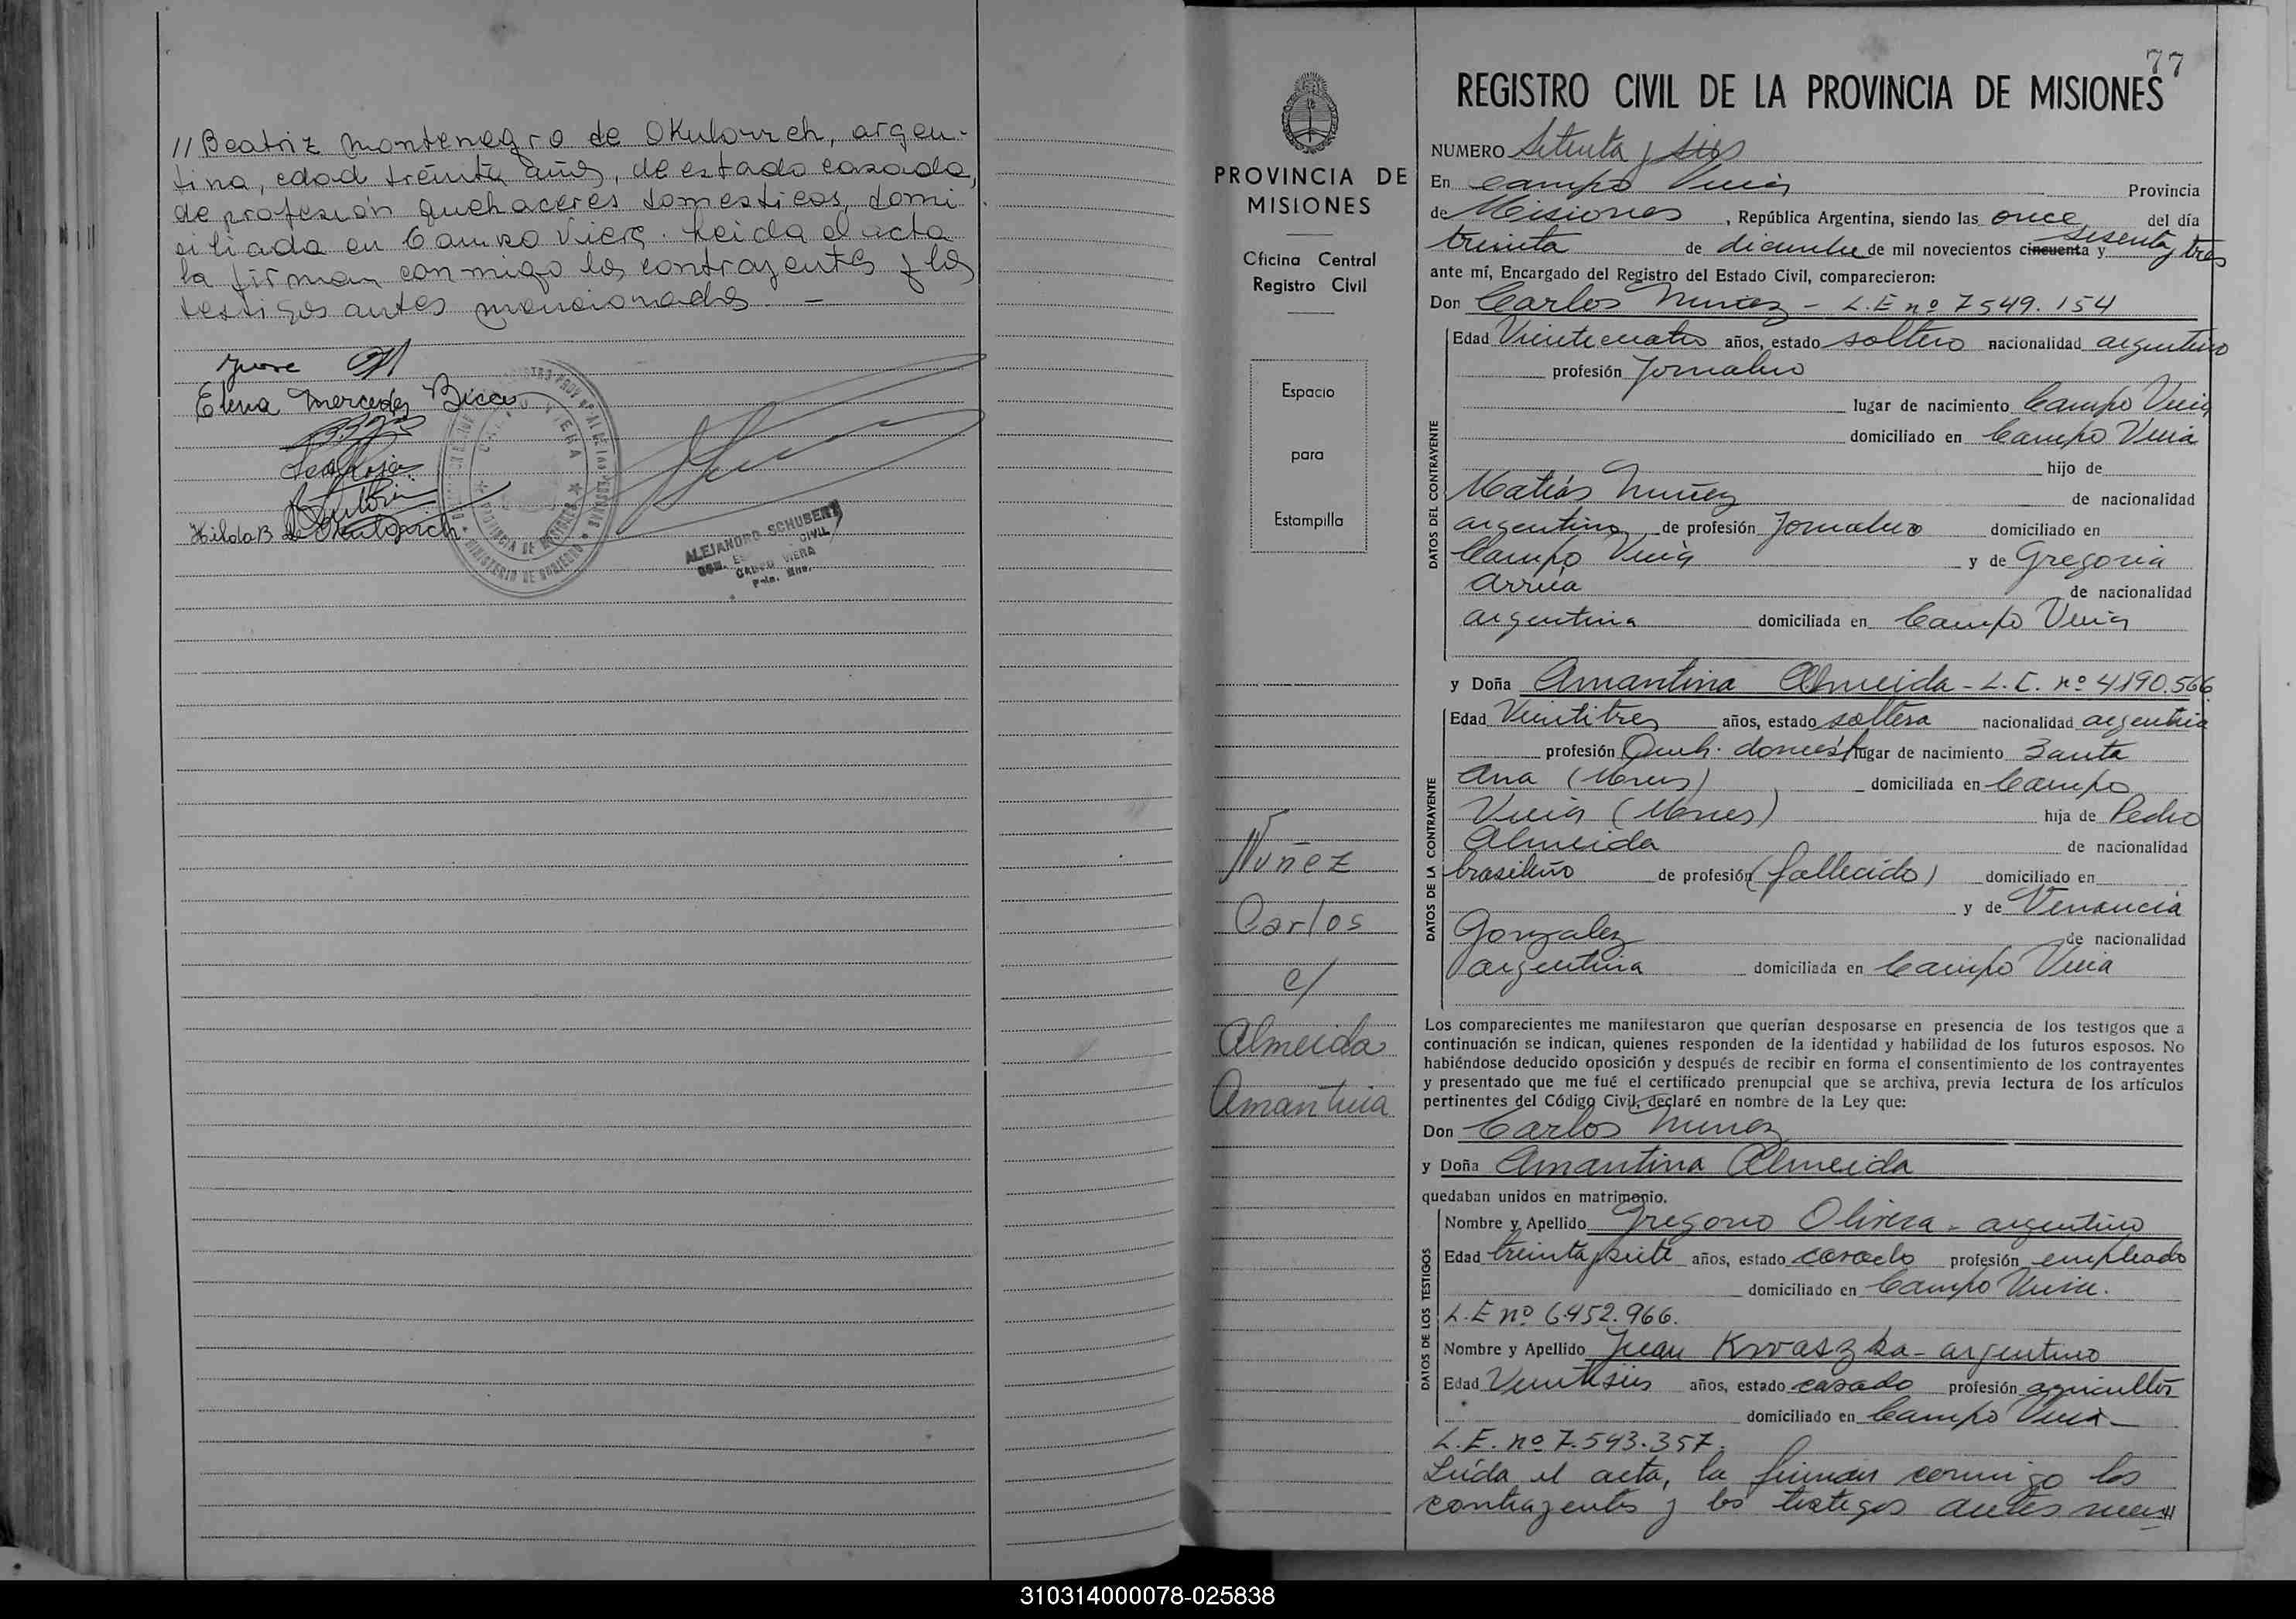 // Beatriz Montenegro de Okulovich, argen-
tina, edad treinta años, de estado casada,
de profesión quehaceres domesticos, domi
ciliada en Campo Viera. Leida el acta
la firman conmigo los contrayentes y los
testigos antes mencionados. —
Elena Mercedes Bicca
Hilda B de Okulovich
CAMPO VIERA
PROVINCIA DE MISIONES
MINISTERIO DE GOBIERNO
ALEJANDRO SCHUBERT
CIVIL
CAMPO VIERA
Pcia. Mnes.
77
PROVINCIA DE
MISIONES
Oficina Central
Registro Civil
Espacio
para
Estampilla
Nuñez
Carlos
c/
Almeida
Amantina
REGISTRO CIVIL DE LA PROVINCIA DE MISIONES
NUMERO Setenta y seis
En Campo Viera Provincia
de Misiones, República Argentina, siendo las once del día
treinta de diciembre de mil novecientos cincuenta y sesenta y tres
ante mí, Encargado del Registro del Estado Civil, comparecieron:
Don Carlos Nuñez - L.E nº 7549.154
DATOS DEL CONTRAYENTE
Edad Veinticuatro años, estado soltero nacionalidad argentino
profesión Jornalero
lugar de nacimiento Campo Viera
domiciliado en Campo Viera
hijo de
Matias Nuñez de nacionalidad
argentino de profesión Jornalero domiciliado en
Campo Viera y de Gregoria
Arrua de nacionalidad
argentina domiciliada en Campo Viera
y Doña Amantina Almeida - L.C. nº 4190.566
DATOS DE LA CONTRAYENTE
Edad Veintitres años, estado soltera nacionalidad argentina
profesión Queh. domést lugar de nacimiento Santa
Ana (Mnes) domiciliada en Campo
Viera (Mnes) hija de Pedro
Almeida de nacionalidad
brasileño de profesión (fallecido) domiciliado en
y de Venancia
Gonzalez de nacionalidad
argentina domiciliada en Campo Viera
Los comparecientes me manifestaron que querían desposarse en presencia de los testigos que a
continuación se indican, quienes responden de la identidad y habilidad de los futuros esposos. No
habiéndose deducido oposición y después de recibir en forma el consentimiento de los contrayentes
y presentado que me fué el certificado prenupcial que se archiva, previa lectura de los artículos
pertinentes del Código Civil, declaré en nombre de la Ley que:
Don Carlos Nuñez
y Doña Amantina Almeida
quedaban unidos en matrimonio.
DATOS DE LOS TESTIGOS
Nombre y Apellido Gregorio Olivera - argentino
Edad treinta y siete años, estado casado profesión empleado
domiciliado en Campo Viera.
L.E nº 6.452.966.
Nombre y Apellido Juan Kwaszka - argentino
Edad Veintiseis años, estado casado profesión agricultor
domiciliado en Campo Viera
L.E. nº 7.543.357.
Leida el acta, la firman conmigo los
contrayentes y los testigos antes men//
310314000078-025838